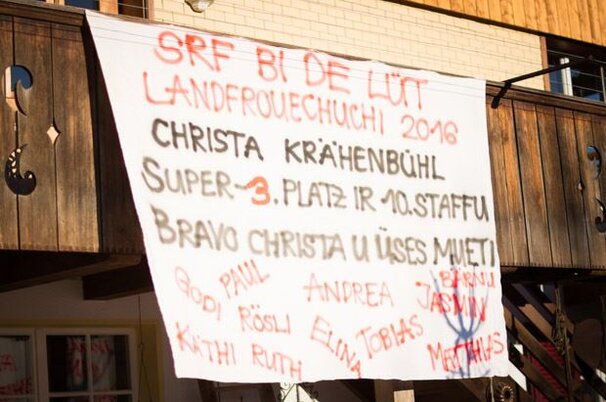 SRF BI DE LÜT
LANDFROUECHUCHI 2016
CHRISTA KRÄHENBÜHL
SUPER-3. PLATZ IR 10. STAFFU
BRAVO CHRISTA U ÜSES MUETI
GODI PAUL ANDREA BÄRNU
RÖSLI JASMIN
KÄTHI RUTH ELINA TOBIAS MATTHIAS